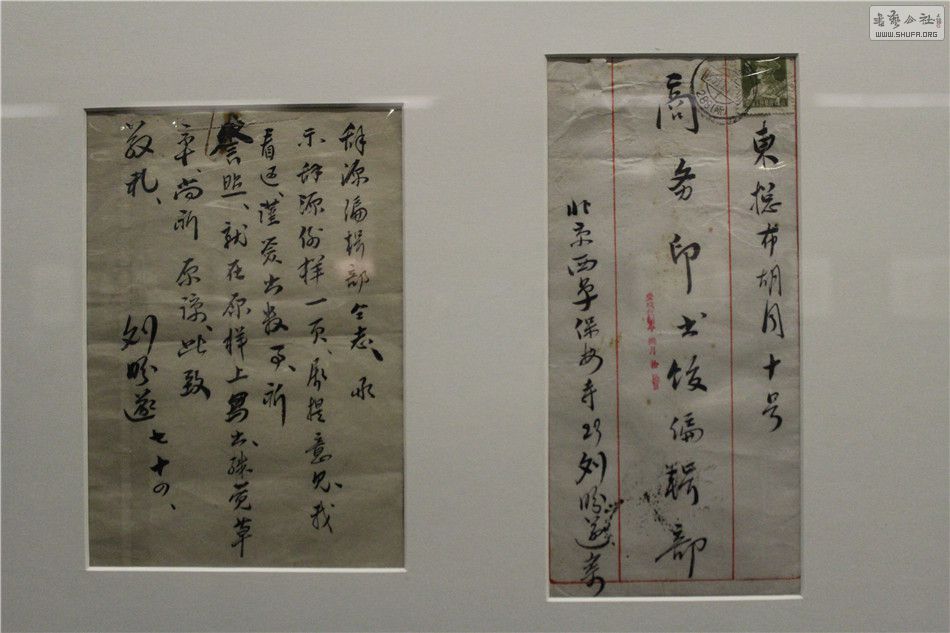 辞源编辑部仝志 承
示辞源份样一页、属提意见、我
看过、谨签出数事、祈
詧照、就在原样上写出殊觉草
率、尚祈原谅、此致
敬礼、
刘盼遂 七、十四、
東揔布胡同十号
商务印书馆编辑部
北京西单保安寺 刘盼遂寄
书艺公社
WWW.SHUFA.ORG